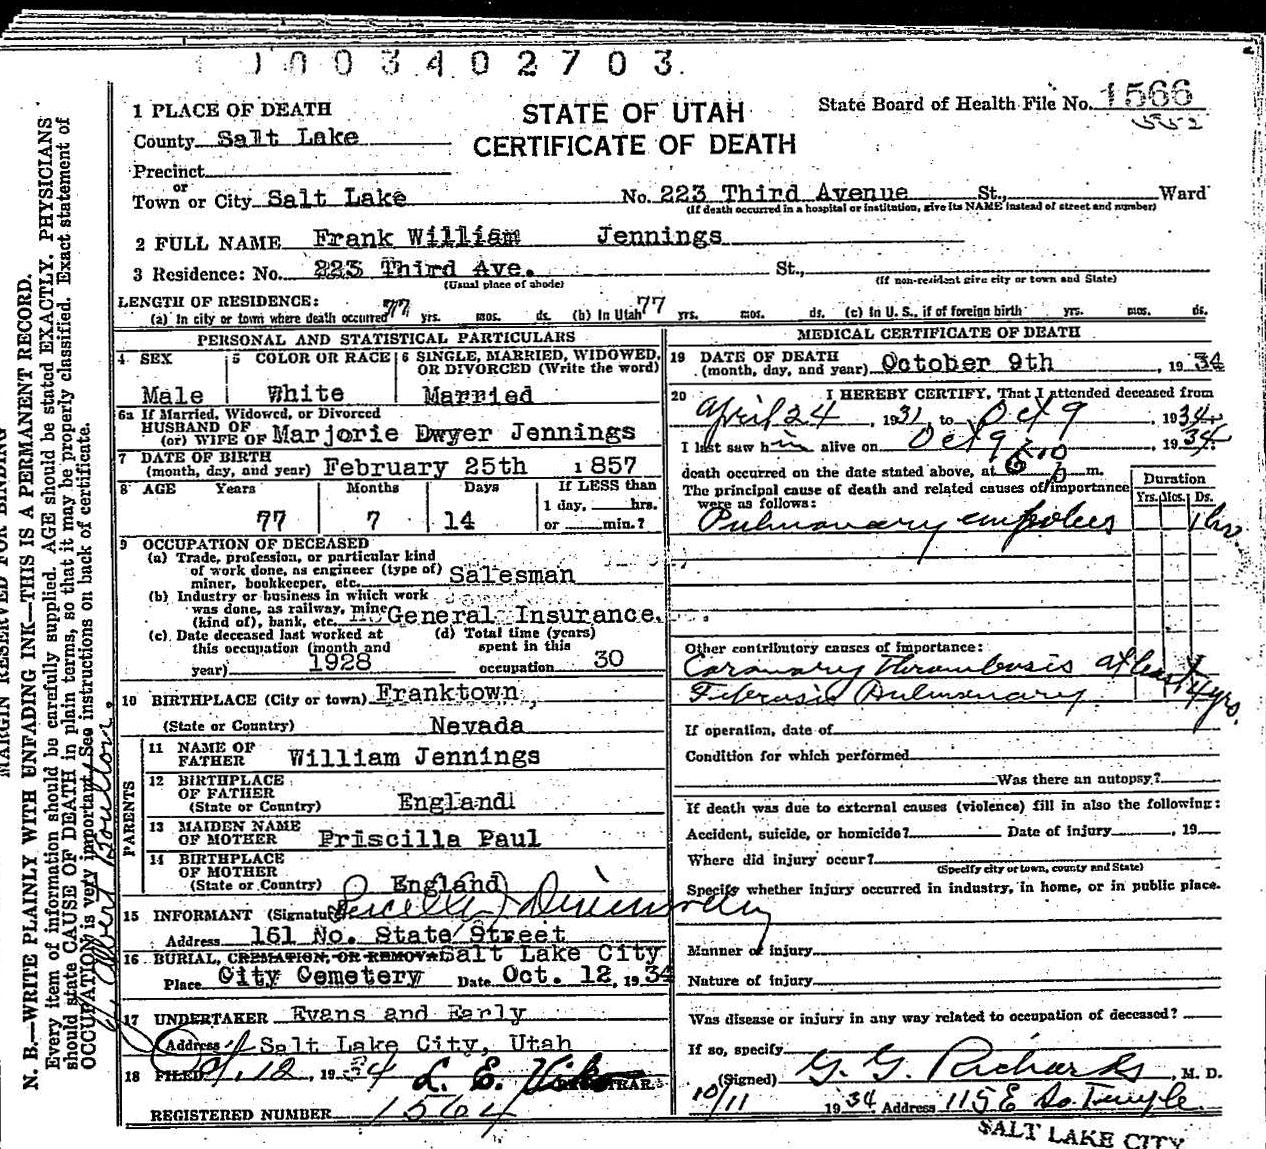 1003402703.
1 PLACE OF DEATH
STATE OF UTAH
CERTIFICATE OF DEATH
State Board of Health File No. 1566
552
County Salt Lake
Precinct
or
Town or City Salt Lake No. 223 Third Avenue St., Ward
(If death occurred in a hospital or institution, give its NAME instead of street and number)
2 FULL NAME Frank William Jennings
3 Residence: No. 223 Third Ave. St.,
(Usual place of abode) (If non-resident give city or town and State)
LENGTH OF RESIDENCE:
(a) In city or town where death occurred 77 yrs. mos. ds. (b) In Utah 77 yrs. mos. ds. (c) In U. S., if of foreign birth yrs. mos. ds.
PERSONAL AND STATISTICAL PARTICULARS
4 SEX
Male
5 COLOR OR RACE
White
6 SINGLE, MARRIED, WIDOWED,
OR DIVORCED (Write the word)
Married
6a If Married, Widowed, or Divorced
HUSBAND OF
(or) WIFE OF Marjorie Dwyer Jennings
7 DATE OF BIRTH
(month, day, and year) February 25th 1857
8 AGE Years Months Days If LESS than
1 day, hrs.
77 7 14 or min.?
9 OCCUPATION OF DECEASED
(a) Trade, profession, or particular kind
of work done, as engineer (type of)
miner, bookkeeper, etc. Salesman
(b) Industry or business in which work
was done, as railway, mine
(kind of), bank, etc. General Insurance.
(c) Date deceased last worked at
this occupation (month and
year) 1928
(d) Total time (years)
spent in this
occupation 30
10 BIRTHPLACE (City or town) Franktown,
(State or Country) Nevada
PARENTS
11 NAME OF
FATHER William Jennings
12 BIRTHPLACE
OF FATHER
(State or Country) England
13 MAIDEN NAME
OF MOTHER Priscilla Paul
14 BIRTHPLACE
OF MOTHER
(State or Country) England
15 INFORMANT (Signature)
Address 161 No. State Street
16 BURIAL, CREMATION, OR REMOVAL Salt Lake City
Place City Cemetery Date Oct. 12, 1934
17 UNDERTAKER Evans and Early
Address Salt Lake City, Utah
18 FILED 12, 1934 L. E.
REGISTRAR.
REGISTERED NUMBER 1564
MEDICAL CERTIFICATE OF DEATH
19 DATE OF DEATH
(month, day, and year) October 9th, 1934
20 I HEREBY CERTIFY, That I attended deceased from
April 24, 1931, to Oct 9, 1934
I last saw him alive on Oct 9, 1934
death occurred on the date stated above, at 6 p m.
The principal cause of death and related causes of importance
were as follows:
Duration
Yrs. Mos. Ds.
Pulmonary embolus 1 hr.
Other contributory causes of importance:
Coronary thrombosis at least
Fibrosis Pulmonary 4 yrs.
If operation, date of
Condition for which performed
Was there an autopsy?
If death was due to external causes (violence) fill in also the following:
Accident, suicide, or homicide? Date of injury, 19
Where did injury occur?
(Specify city or town, county and State)
Specify whether injury occurred in industry, in home, or in public place.
Manner of injury
Nature of injury
Was disease or injury in any way related to occupation of deceased?
If so, specify
(Signed) G. G. Richards, M. D.
10/11 1934 Address 115 E So. Temple
SALT LAKE CITY
MARGIN RESERVED FOR BINDING
N. B.—WRITE PLAINLY WITH UNFADING INK—THIS IS A PERMANENT RECORD.
Every item of information should be carefully supplied. AGE should be stated EXACTLY. PHYSICIANS
should state CAUSE OF DEATH in plain terms, so that it may be properly classified. Exact statement of
OCCUPATION is very important. See instructions on back of certificate.